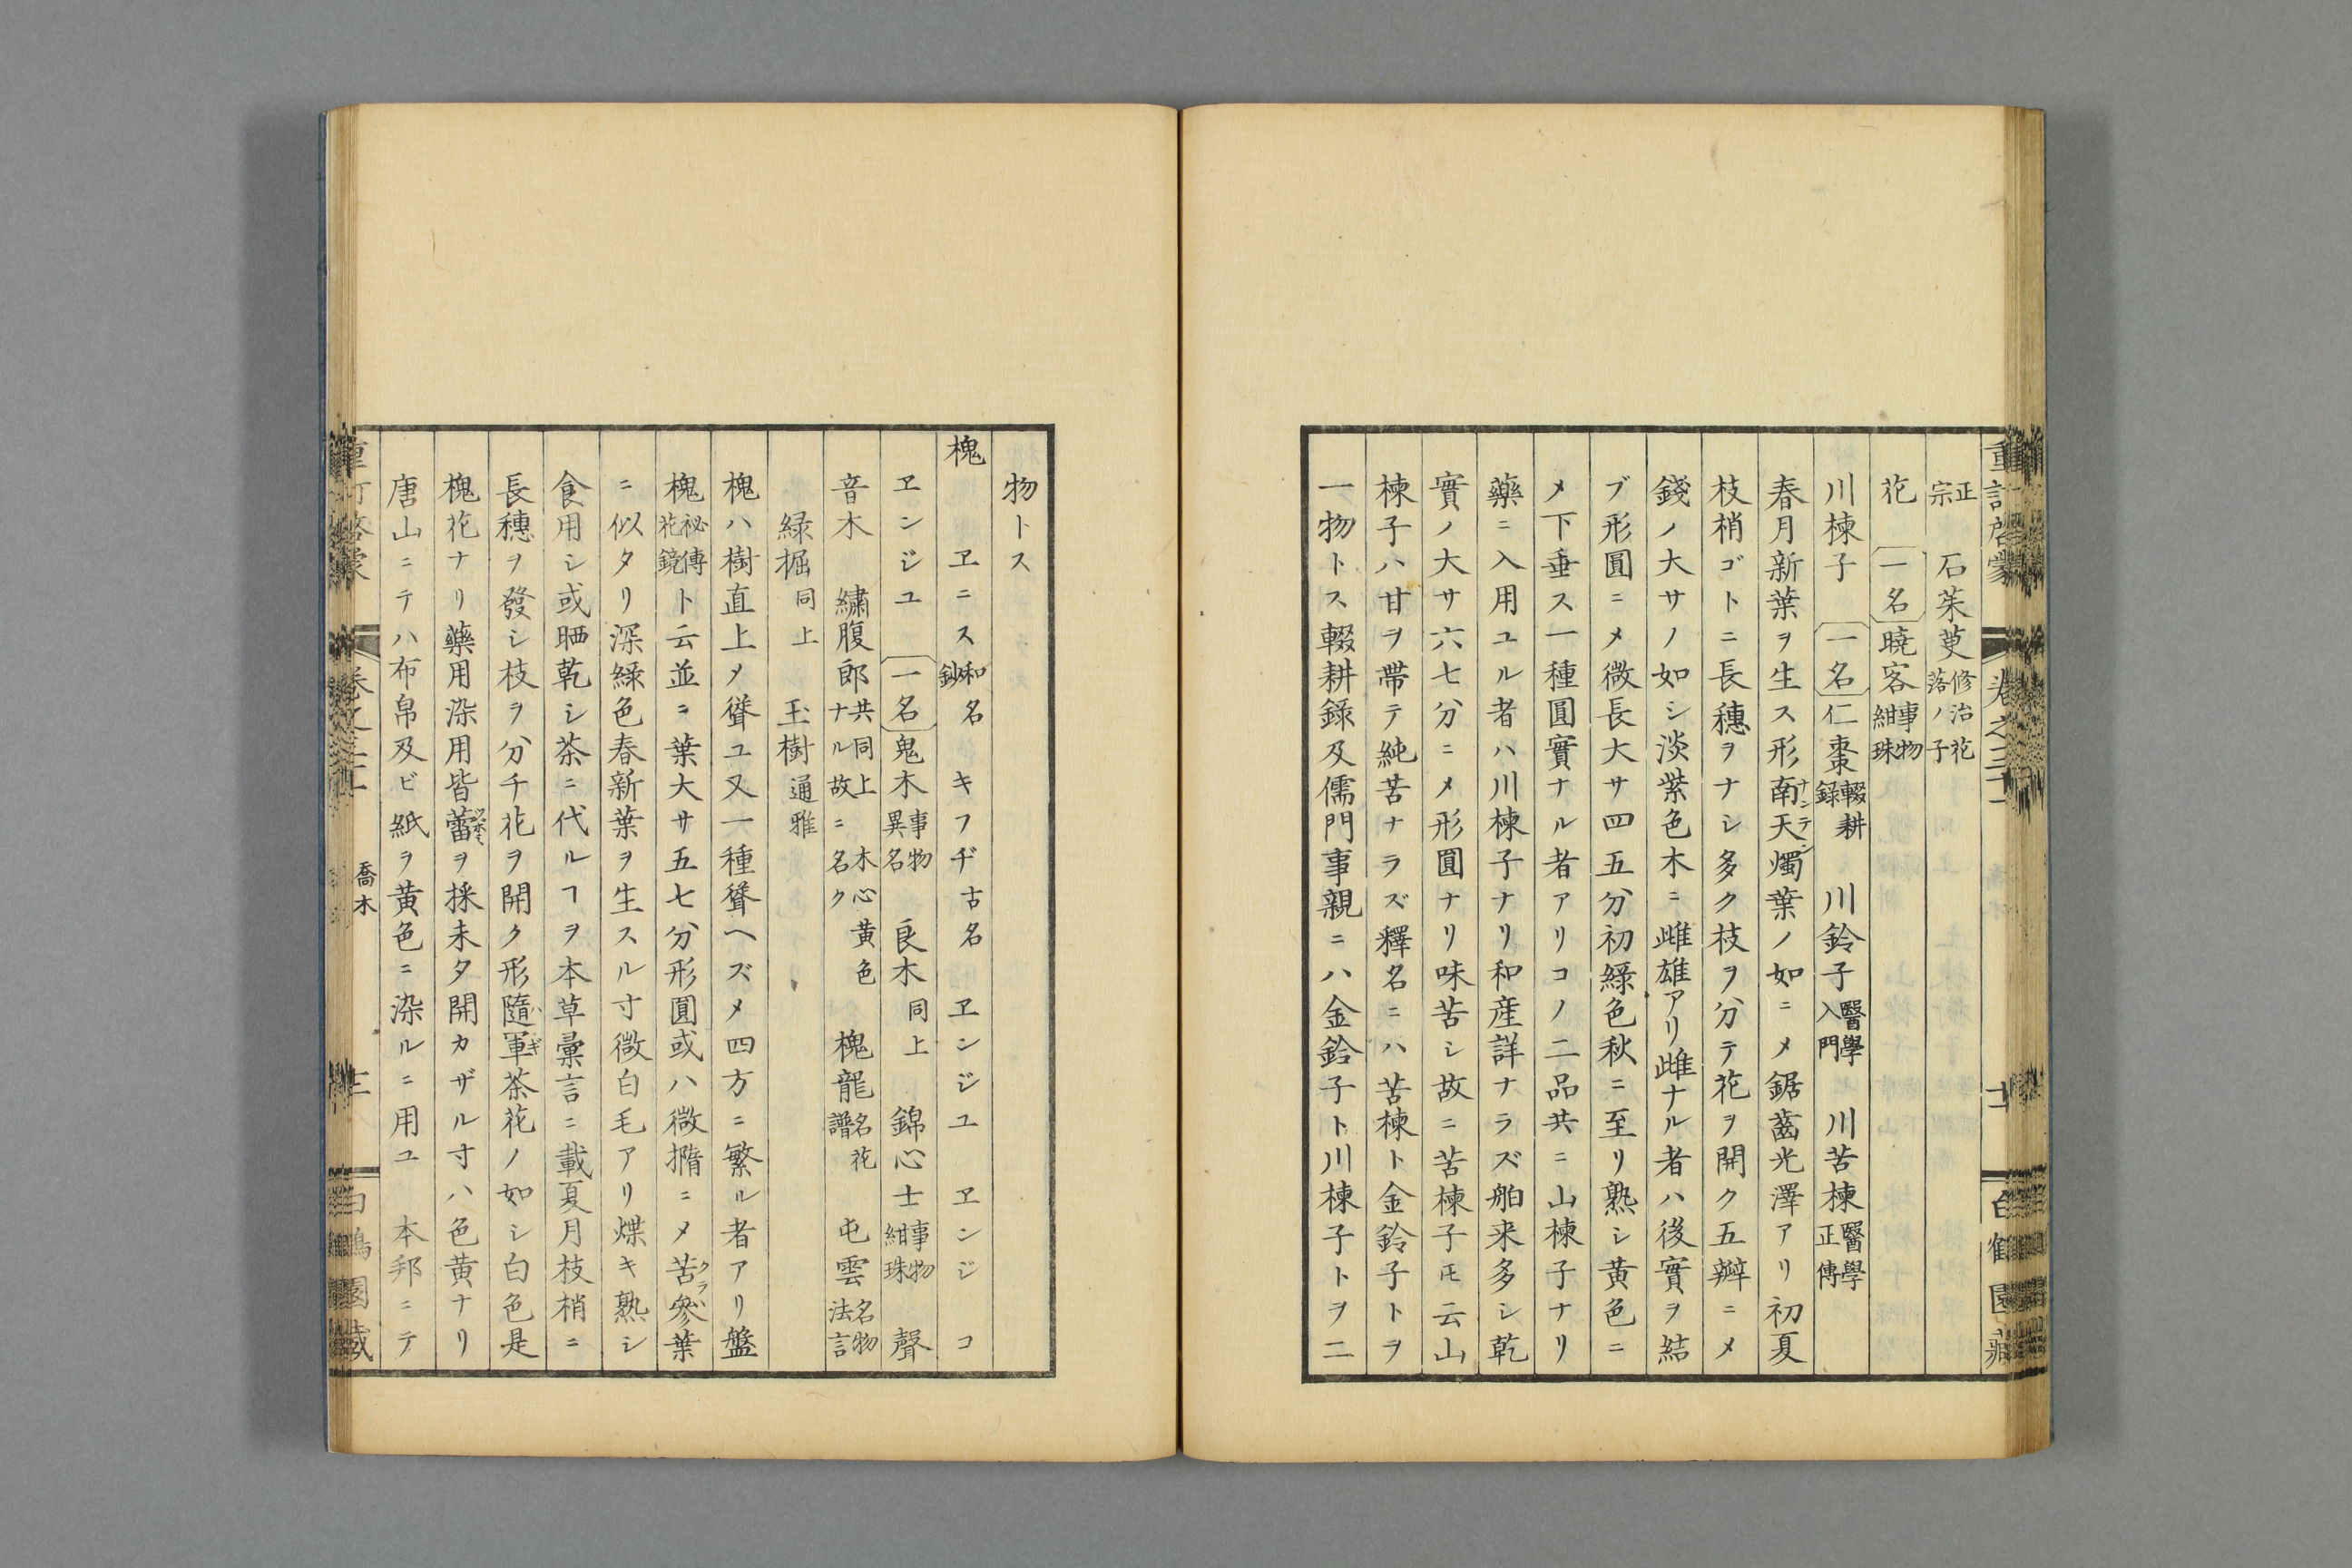 重訂啓蒙 卷之三十一 十一 白鶴園藏
正宗 石茱萸修治花落ノ子
花 一名曉客事物紺珠
川楝子 一名仁棗輟耕録 川鈴子醫學入門 川苦楝醫學正傳
春月新葉ヲ生ス形南天燭葉ノ如ニメ鋸齒光澤アリ初夏
ナンテン
枝梢ゴトニ長穗ヲナシ多ク枝ヲ分テ花ヲ開ク五瓣ニメ
錢ノ大サノ如シ淡紫色木ニ雌雄アリ雌ナル者ハ後實ヲ結
ブ形圓ニメ微長大サ四五分初綠色秋ニ至リ熟シ黄色ニ
メ下垂ス一種圓實ナル者アリコノ二品共ニ山楝子ナリ
藥ニ入用ユル者ハ川楝子ナリ和産詳ナラズ舶来多シ乾
實ノ大サ六七分ニメ形圓ナリ味苦シ故ニ苦楝子𪜈云山
楝子ハ甘ヲ帶テ純苦ナラズ釋名ニハ苦楝ト金鈴子トヲ
一物トス輟耕録及儒門事親ニハ金鈴子ト川楝子トヲ二
物トス
槐 ヱニス和名鈔 キフヂ古名 ヱンジユ ヱンジコ
ヱンジユ 一名鬼木事物異名 良木同上 錦心士事物紺珠 聲
音木 繡腹郎共同上木心黄色ナル故ニ名ク 槐龍名花譜 屯雲名物法言
緑掘同上 玉樹通雅
槐ハ樹直上メ聳ユ又一種聳ヘズメ四方ニ繁ル者アリ盤
槐祕傳花鏡ト云並ニ葉大サ五七分形圓或ハ微撱ニメ苦參葉
クララ
ニ似タリ深綠色春新葉ヲ生スル寸微白毛アリ煠キ熟シ
食用シ或晒乾シ茶ニ代ルヿヲ本草彙言ニ載夏月枝梢ニ
長穗ヲ發シ枝ヲ分千花ヲ開ク形隨軍茶花ノ如シ白色是
ハギ
槐花ナリ藥用染用皆蕾ヲ採未タ開カザル寸ハ色黄ナリ
ツボミ
唐山ニテハ布帛及ビ紙ヲ黄色ニ染ルニ用ユ 本邦ニテ
喬木